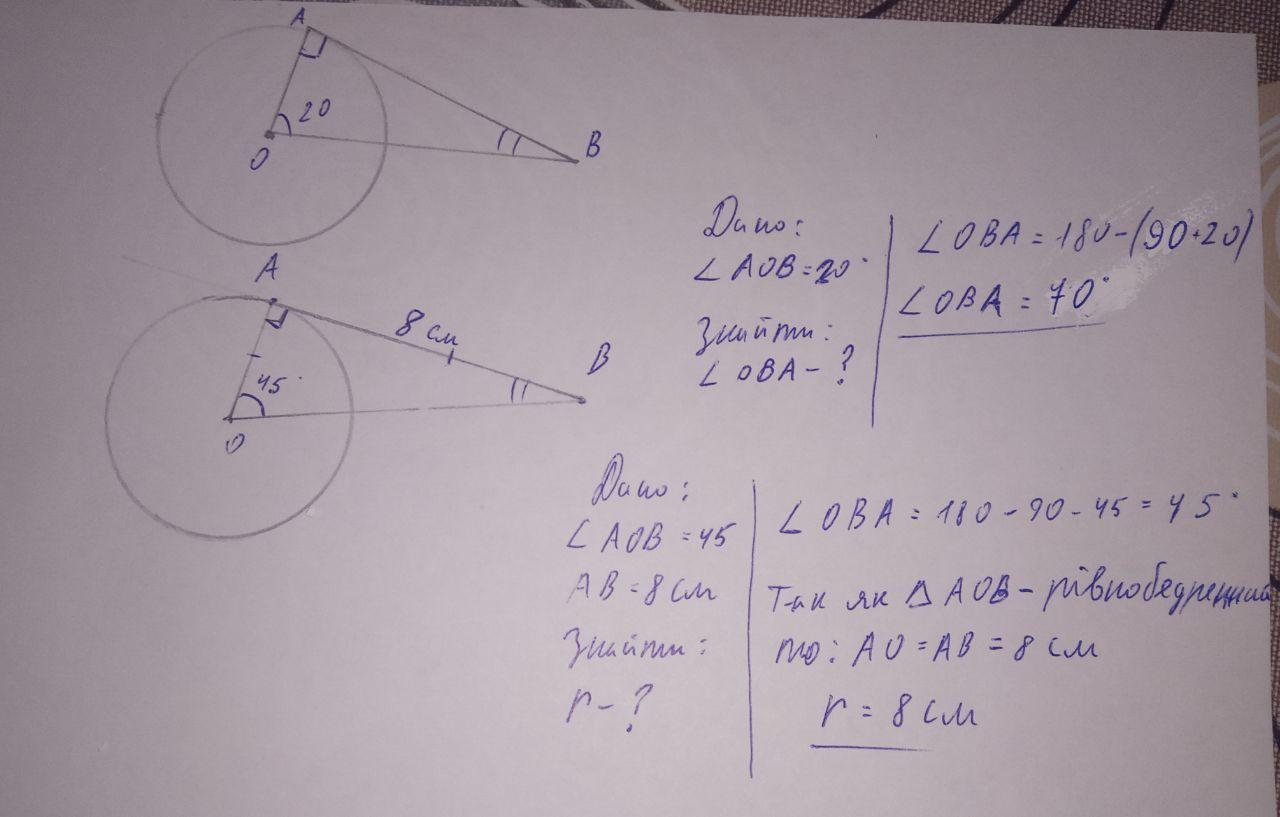 A
20
O
B
Дано:
∠AOB=20°
Знайти:
∠OBA-?
∠OBA=180-(90+20)
∠OBA=70°
A
8 см
B
45°
O
Дано:
∠AOB=45
AB=8 см
Знайти:
r-?
∠OBA=180-90-45=45°
Так як △AOB-рівнобедренний
то: AO=AB=8 см
r=8 см